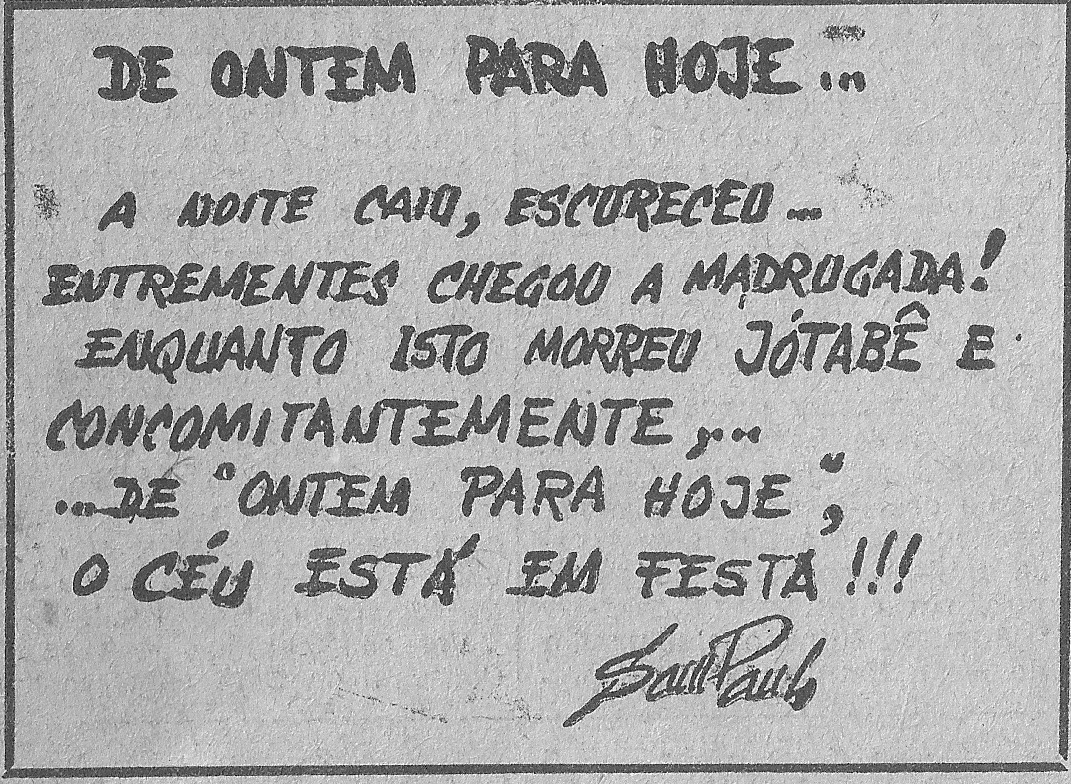 DE ONTEM PARA HOJE...
A NOITE CAIU, ESCURECEU...
ENTREMENTES CHEGOU A MADRUGADA!
ENQUANTO ISTO MORREU JÓTABÊ E
CONCOMITANTEMENTE,...
...DE "ONTEM PARA HOJE",
O CÉU ESTÁ EM FESTA!!!